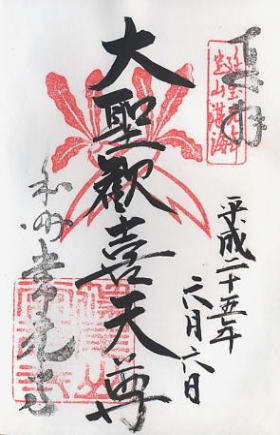 奉拝
宝山湛海
平成二十五年
六月六日
大聖歡喜天尊
和州
常光寺